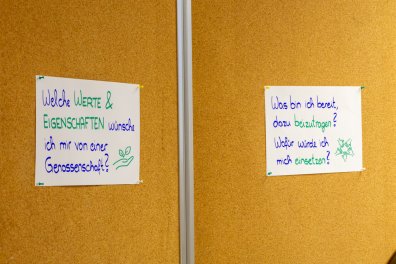 Welche WERTE &
EIGENSCHAFTEN wünsche
ich mir von einer
Genossenschaft?
Was bin ich bereit,
dazu beizutragen?
Wofür würde ich
mich einsetzen?